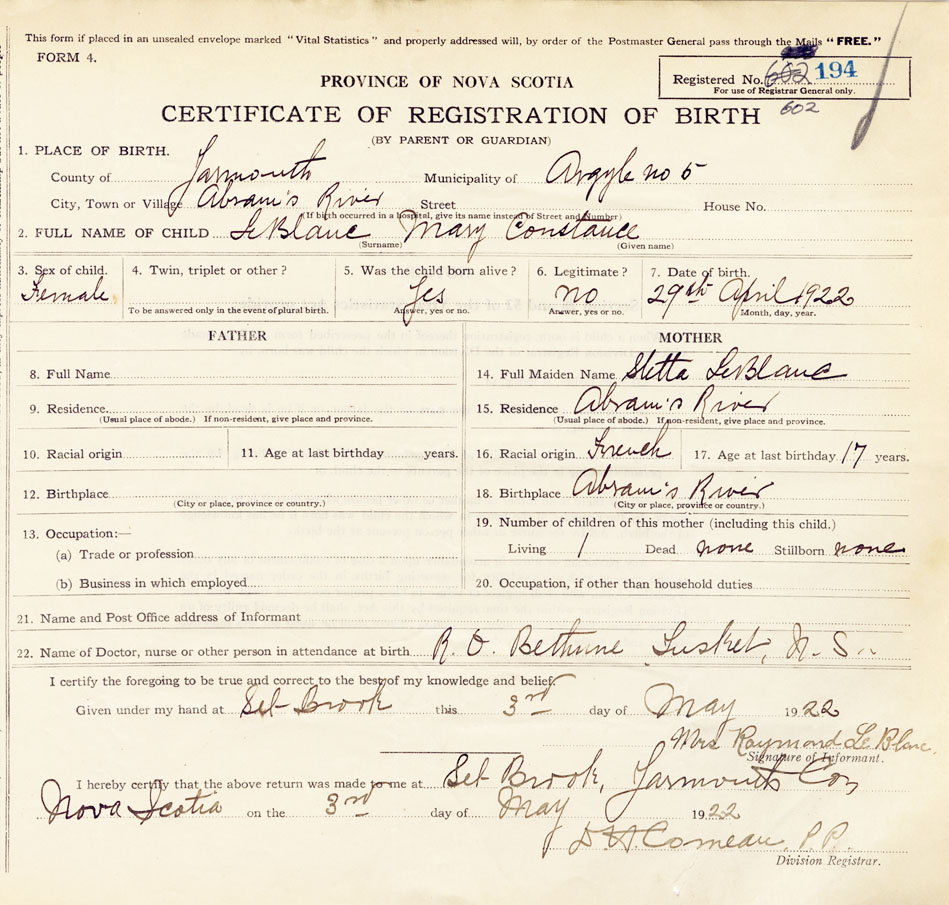 This form if placed in an unsealed envelope marked "Vital Statistics" and properly addressed will, by order of the Postmaster General pass through the Mails "FREE."
FORM 4.
PROVINCE OF NOVA SCOTIA
Registered No. 602 194
For use of Registrar General only.
602
CERTIFICATE OF REGISTRATION OF BIRTH
(BY PARENT OR GUARDIAN)
1. PLACE OF BIRTH.
County of Yarmouth Municipality of Argyle no 5
City, Town or Village Abram's River Street House No.
(If birth occurred in a hospital, give its name instead of Street and Number)
2. FULL NAME OF CHILD LeBlanc Mary Constance
(Surname) (Given name)
3. Sex of child. 4. Twin, triplet or other? 5. Was the child born alive? 6. Legitimate? 7. Date of birth.
Female Yes no 29th April 1922
To be answered only in the event of plural birth. Answer, yes or no. Answer, yes or no. Month, day, year.
FATHER MOTHER
8. Full Name 14. Full Maiden Name LeBlanc
9. Residence. 15. Residence Abram's River
(Usual place of abode.) If non-resident, give place and province. (Usual place of abode.) If non-resident, give place and province.
10. Racial origin 11. Age at last birthday years. 16. Racial origin French 17. Age at last birthday 17 years.
12. Birthplace 18. Birthplace Abram's River
(City or place, province or country.) (City or place, province or country.)
13. Occupation:— 19. Number of children of this mother (including this child.)
(a) Trade or profession Living 1 Dead none Stillborn none
(b) Business in which employed 20. Occupation, if other than household duties
21. Name and Post Office address of Informant
22. Name of Doctor, nurse or other person in attendance at birth R. O. Bethune Tusket, N. S.
I certify the foregoing to be true and correct to the best of my knowledge and belief.
Given under my hand at Sel Brook this 3rd day of May 1922
Mrs Raymond Le Blanc.
Signature of Informant.
I hereby certify that the above return was made to me at Sel Brook, Yarmouth Co,
Nova Scotia on the 3rd day of May 1922
D. H. Comeau, P.P.
Division Registrar.